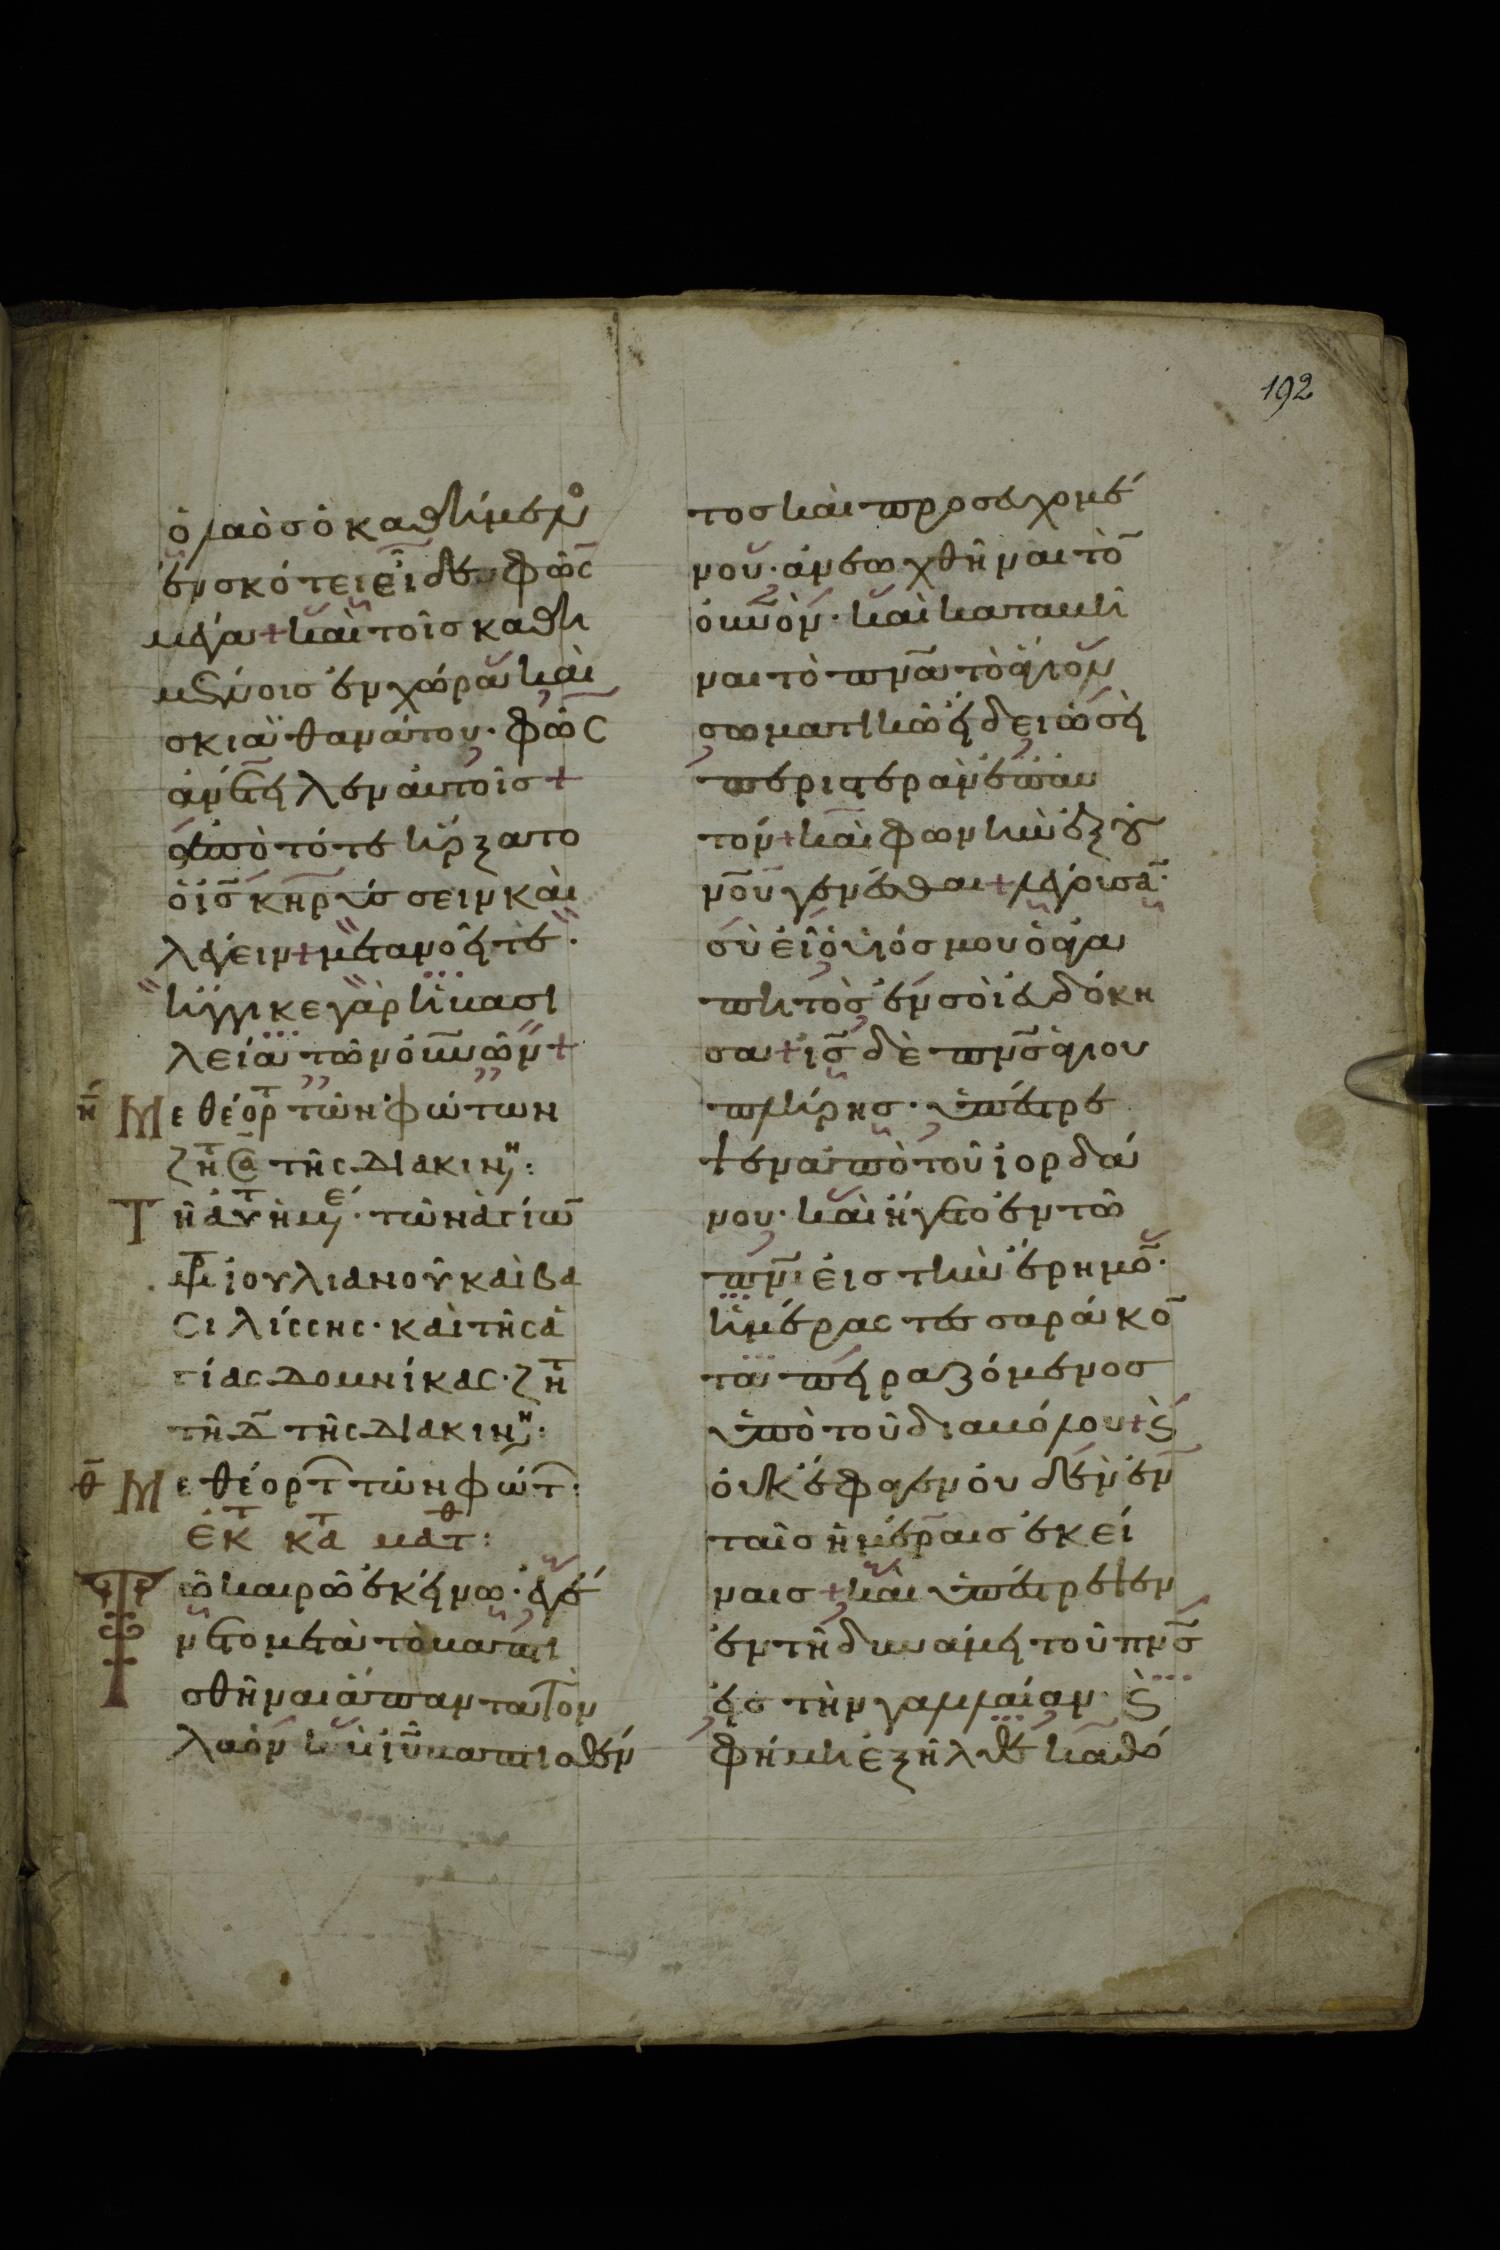 192
ὁ λαὸσ ὁ καθήμενο
ἐν σκότει εἶδεν φῶς
μέγα + καὶ τοῖσ καθη
μένοισ ἐν χώρα καὶ
σκιᾶ θανάτου · φῶς
ἀνέτειλεν αὐτοῖσ +
ἀπὸ τότε ἤρξατο
ὁ ἰ̅σ̅ κηρύσσειν καὶ
λέγειν + μετανοεῖτε ·
ἤγγικε γὰρ ἡ βασι
λεία τῶν οὐ̅ν̅ῶν +
η̅ Μεθέορτ τῶν φώτων
ζητ̅ ϲα̅ τῆς διακινη :
Τῆ ἀυτ ἡμε · τῶν ἁγίω̅
μρ ἰουλιανοῦ καὶ βα
σιλίσσης · καὶ τῆς ἁ
γίας δομνίκας · ζητ̅
τῆ δ̅ τῆς διακινη :
θ̅ Μεθέορτ τῶν φώτ :
ἐκ κτα ματθ :
Τῶ καιρῶ ἐκείνω · ἐγέ
νετο μετὰ τὸ βαπτι
σθῆναι ἅπαντα τὸν
λαόν καὶ ἰ̅υ̅ βαπτισθέν
τοσ καὶ προσευχομέ
νου · ἀνεωχθῆναι το̅
οὐ̅ν̅όν · καὶ καταβῆ
ναι τὸ π̅ν̅α̅ τὸ ἅγιον
σωματικῶ εἴδει ὡσεὶ
περιστερὰν ἐπ' αὐ
τόν + καὶ φωνὴν ἐξ οὐ
ν̅ο̅υ̅ γενέσθαι + λέγουσα̅ ·
σὺ εἶ ὁ υἱόσ μου ὁ ἀγα
πητὸσ ἐν σοὶ εὐδόκη
σα + ἰ̅σ̅ δὲ π̅ν̅σ̅ ἁγίου
πλήρησ · ὑπέστρε
ψεν ἀπὸ τοῦ ἰορδά
νου · καὶ ἤγετο ἐν τῶ
π̅ν̅ι̅ εἰσ τὴν ἔρημο̅ ·
ἡμέρας τεσσαράκο̅
τα πειραζόμενοσ
ὑπὸ τοῦ διαβόλου + ϗ
οὐκ ἔφαγεν οὐδὲν ἐν
ταῖσ ἡμέραισ ἐκεί
ναισ + καὶ ὑπέστρεψεν
ἐν τῆ δυνάμει τοῦ π̅ν̅σ̅
εἰσ τὴν γαλιλαίαν · ϗ
φήμη ἐξῆλθε καθό